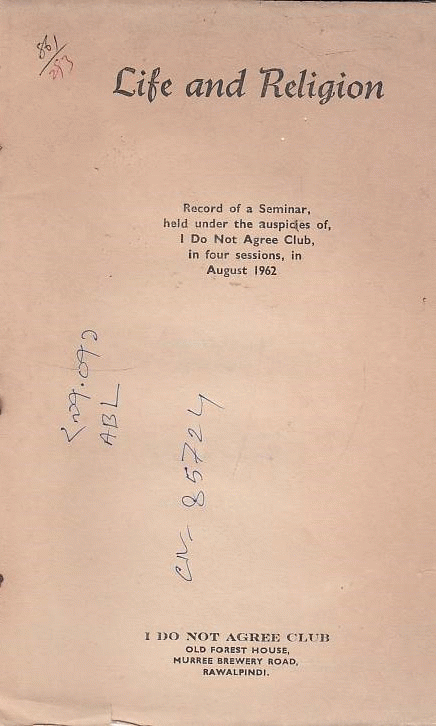 861/
293
Life and Religion
Record of a Seminar,
held under the auspicies of,
I Do Not Agree Club,
in four sessions, in
August 1962
ABL
85724
I DO NOT AGREE CLUB
OLD FOREST HOUSE,
MURREE BREWERY ROAD,
RAWALPINDI.